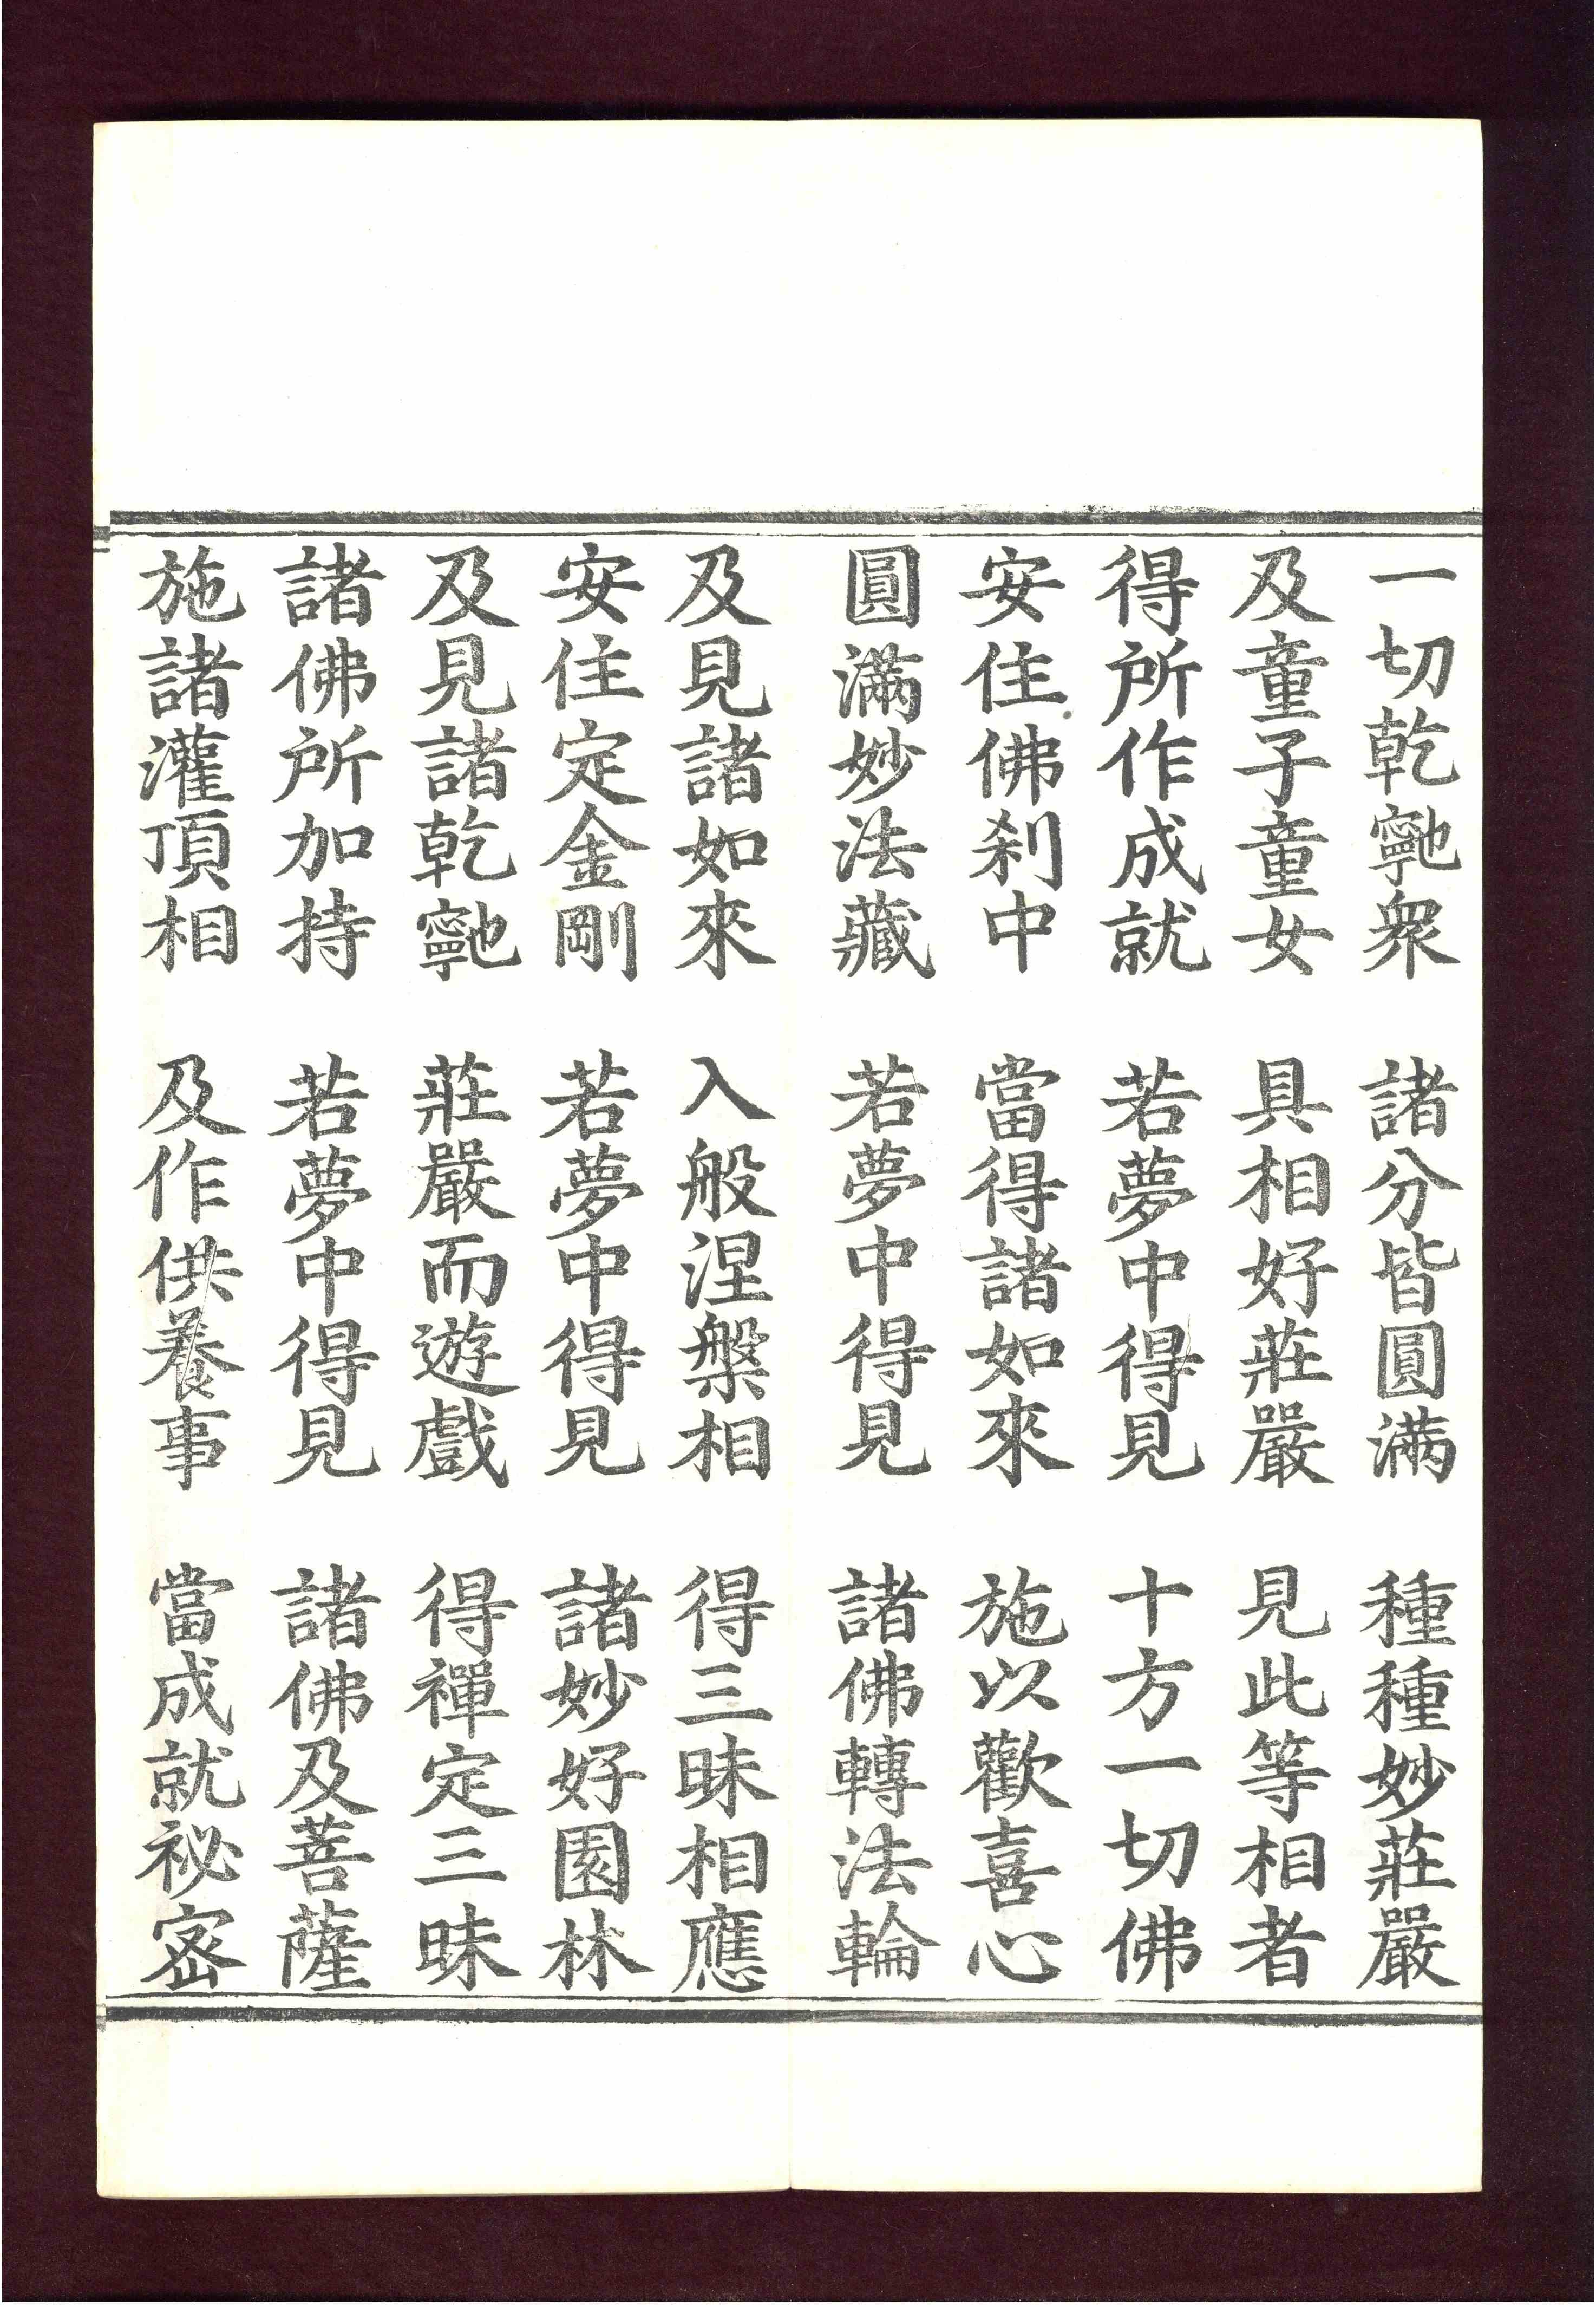 一切乾⿰寧也衆　諸分皆圓滿　種種妙莊嚴
及童子童女　具相好莊嚴　見此等相者
得所作成就　若夢中得見　十方一切佛
安住佛刹中　當得諸如來　施以歡喜心
圓滿妙法藏　若夢中得見　諸佛轉法輪
及見諸如來　入般涅槃相　得三昧相應
安住定金剛　若夢中得見　諸妙好園林
及見諸乾⿰寧也　莊嚴而遊戲　得禪定三昧
諸佛所加持　若夢中得見　諸佛及菩薩
施諸灌頂相　及作供養事　當成就祕密